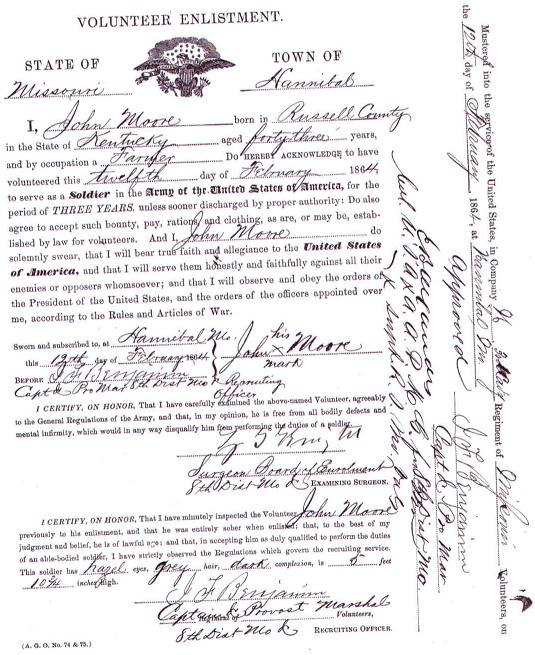 VOLUNTEER ENLISTMENT.
STATE OF TOWN OF
Missouri Hannibal
I, John Moore born in Russell County
in the State of Kentucky aged forty three years,
and by occupation a Farmer Do HEREBY ACKNOWLEDGE to have
volunteered this twelfth day of February 1864,
to serve as a Soldier in the Army of the United States of America, for the
period of THREE YEARS, unless sooner discharged by proper authority: Do also
agree to accept such bounty, pay, rations, and clothing, as are, or may be, estab-
lished by law for volunteers. And I, John Moore do
solemnly swear, that I will bear true faith and allegiance to the United States
of America, and that I will serve them honestly and faithfully against all their
enemies or opposers whomsoever; and that I will observe and obey the orders of
the President of the United States, and the orders of the officers appointed over
me, according to the Rules and Articles of War.
Sworn and subscribed to, at Hannibal Mo.
this 12th day of February 1864
John his x mark Moore
BEFORE J F Benjamin
Capt & Pro Mar 8th Dist Mo & Recruiting
Officer
I CERTIFY, ON HONOR, That I have carefully examined the above-named Volunteer, agreeably
to the General Regulations of the Army, and that, in my opinion, he is free from all bodily defects and
mental infirmity, which would in any way disqualify him from performing the duties of a soldier.
Surgeon Board of Enrolment
8th Dist Mo EXAMINING SURGEON.
I CERTIFY, ON HONOR, That I have minutely inspected the Volunteer, John Moore
previously to his enlistment, and that he was entirely sober when enlisted; that, to the best of my
judgment and belief, he is of lawful age; and that, in accepting him as duly qualified to perform the duties
of an able-bodied soldier, I have strictly observed the Regulations which govern the recruiting service.
This soldier has hazel eyes, grey hair, dark complexion, is 5 feet
10¾ inches high.
J F Benjamin
Captain & Provost Marshal
Regiment of Volunteers,
8th Dist Mo & RECRUITING OFFICER.
(A. G. O. No. 74 & 75.)
Mustered into the service of the United States, in Company Regiment of Volunteers, on
the 12th day of February 1864, at Hannibal Mo
Approved J F Benjamin
Capt & Pro Mar
8th Dist Mo